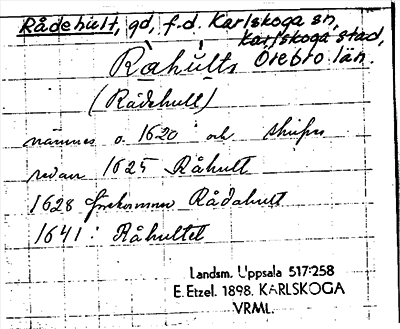 Rådehult, gd, f.d. Karlskoga sn,
Karlskoga stad,
Örebro län.
Råhults
(Rådehult)
nämnes o. 1620 och skrifves
redan 1625 Råhult
1628 förekommer Rådahult
1641: Råhultet
Landsm. Uppsala 517:258
E. Etzel. 1898. KARLSKOGA
VRML.